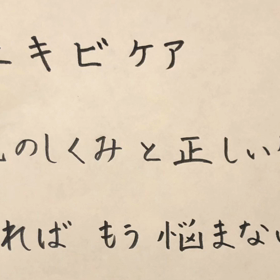 ニキビケア
のしくみと正しい
れば もう 悩まない